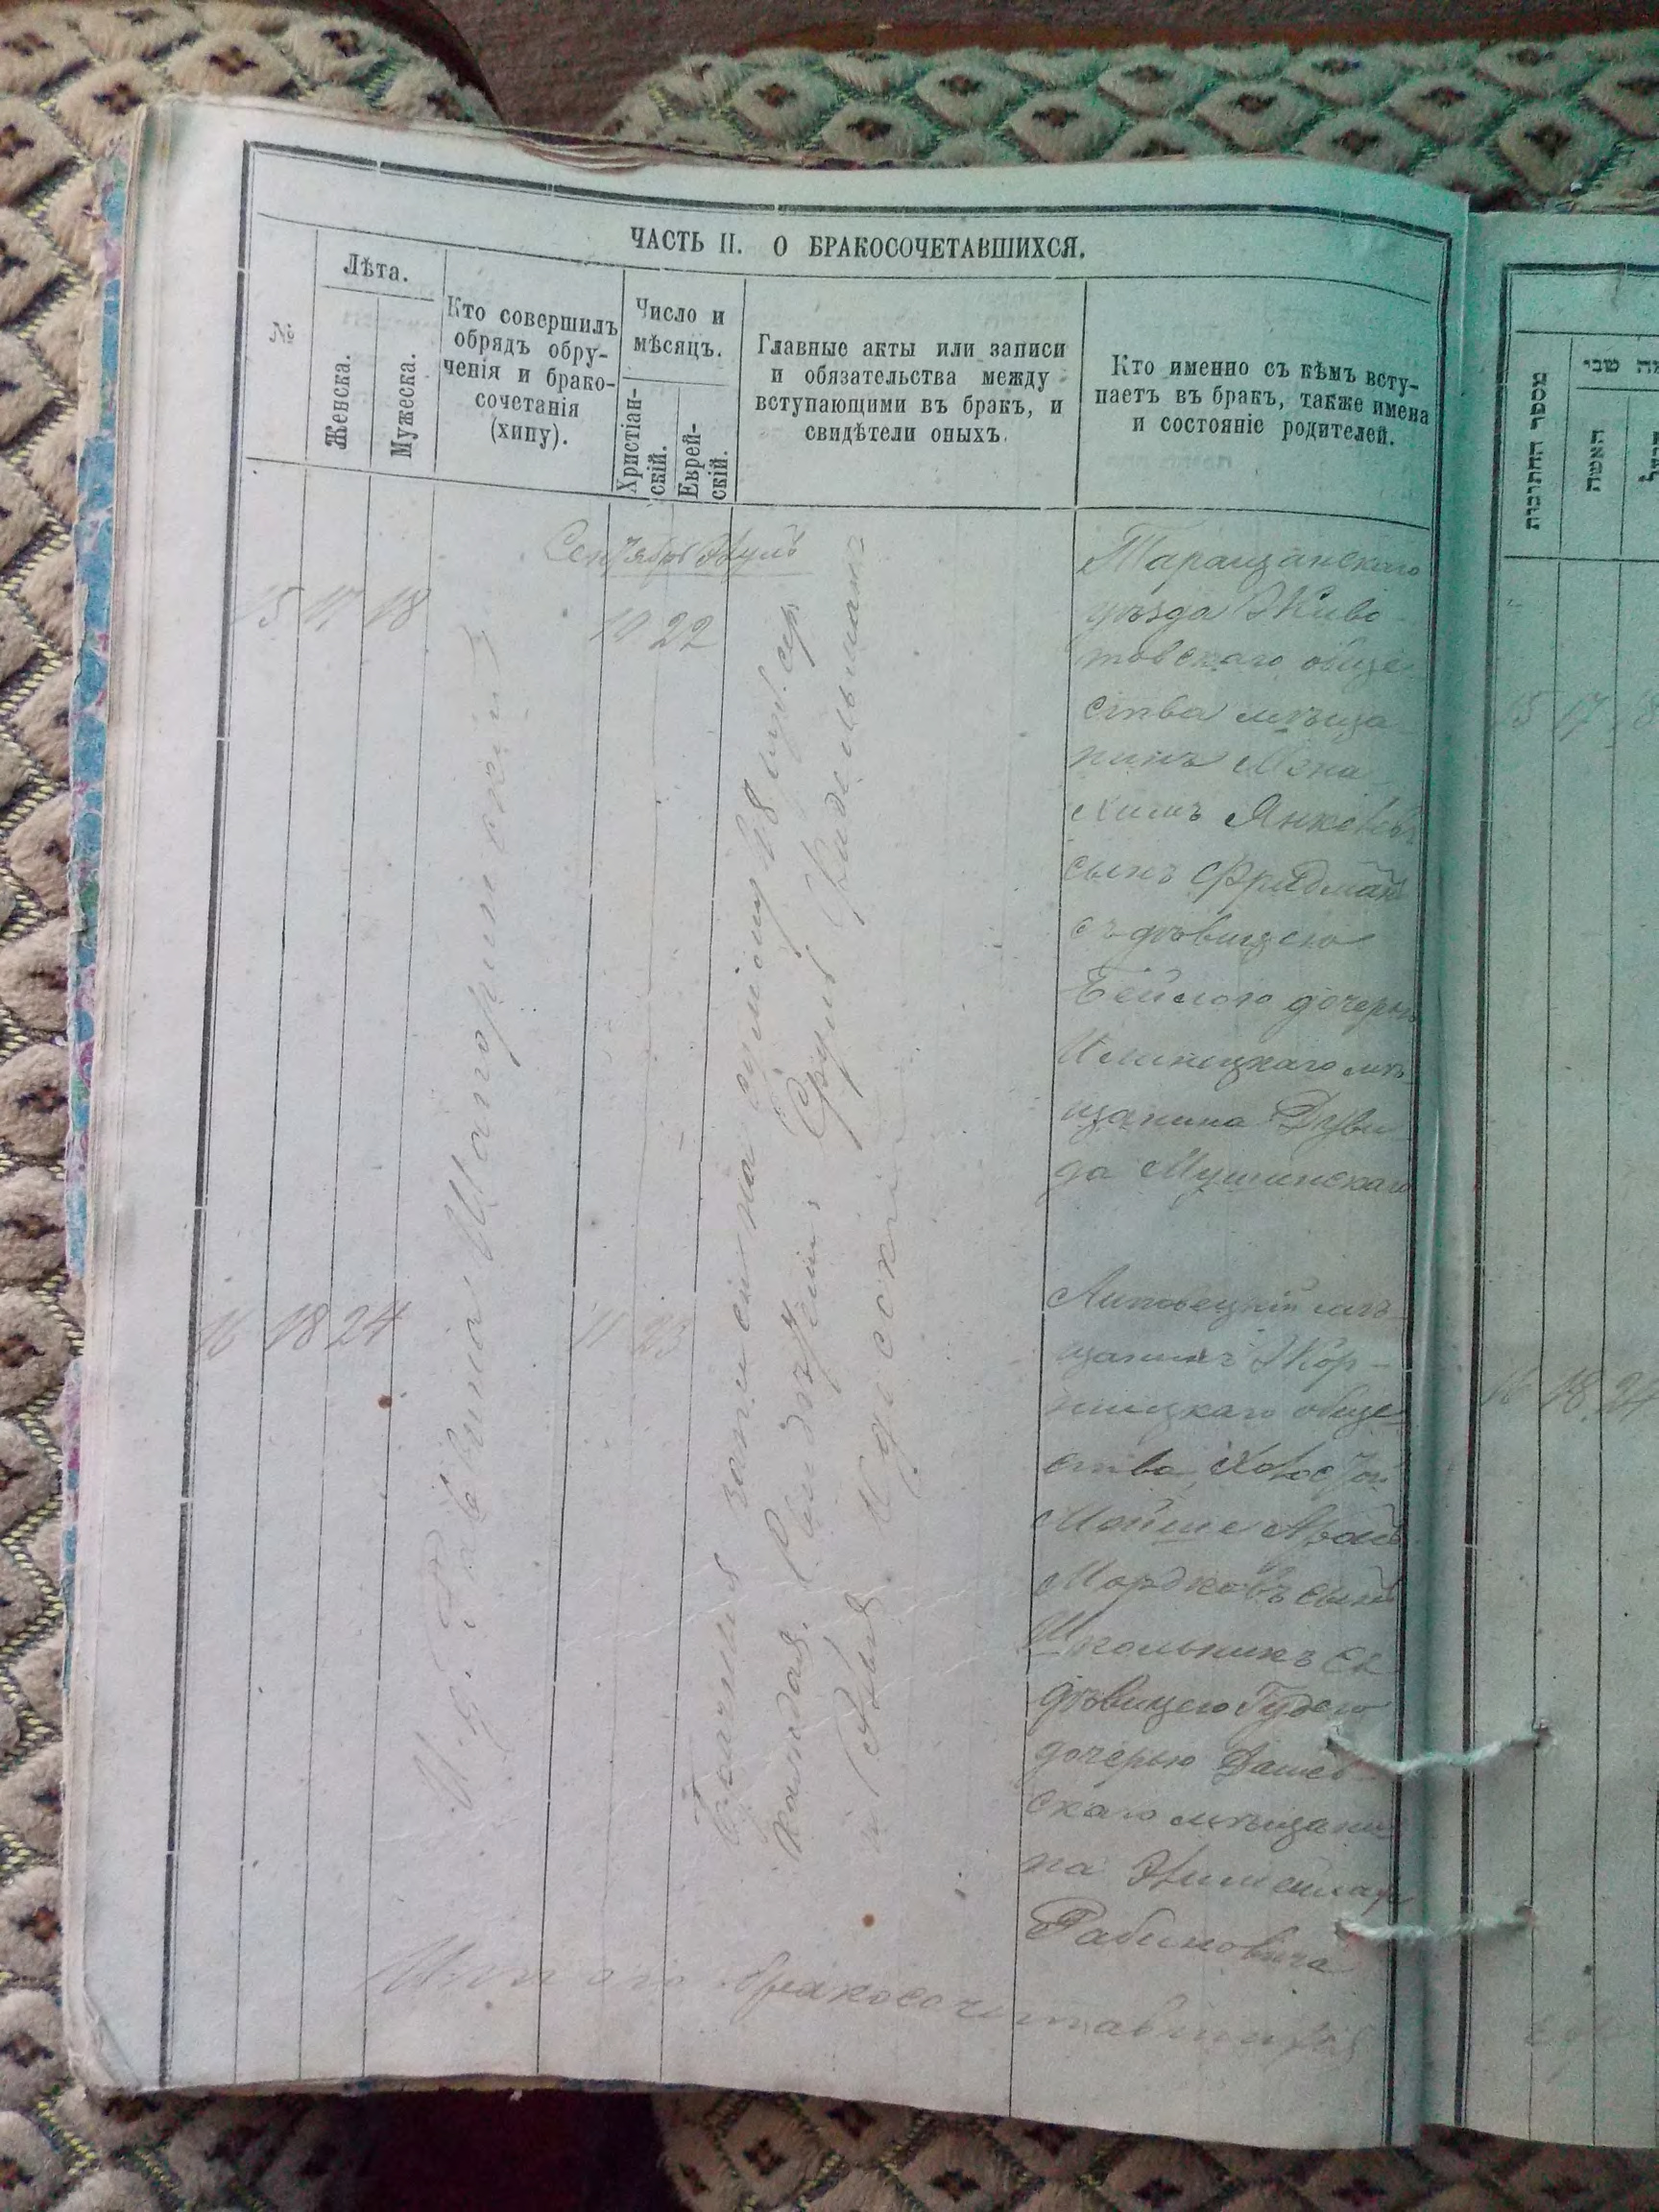 ЧАСТЬ II. О БРАКОСОЧЕТАВШИХСЯ.
№
Лѣта.
Женска.
Мужеска.
Кто совершилъ
обрядъ обру-
ченія и брако-
сочетанія
(хипу).
Число и
мѣсяцъ.
Христіан-
скій.
Еврей-
скій.
Главные акты или записи
и обязательства между
вступающими въ бракъ, и
свидѣтели оныхъ.
Кто именно съ кѣмъ всту-
паетъ въ бракъ, также имена
и состояніе родителей.
Сентябрь Элулъ
15 17 18
10 22
Таращанскаго
уѣзда Живо
товскаго обще
ства мѣща
нинъ Мэна
химъ Янкелевъ
сынъ Фридманъ
съ дѣвицею
Бейлою дочерью
Илинецкаго мѣ
щанина Дуви
да Мушинскаго
И. д. Раввина
записи на сумму 48 руб. сер
каждая. Свидѣтели: Сруль Фидельманъ
16 18 24
11 23
Липовецкій мѣ
щанинъ Жор-
нищкаго обще
ства холостой
Мойше Аронъ
Мордковъ сынъ
Школьникъ съ
дѣвицею Гудею
дочерью Дашев
скаго мѣщани
на
Рабиновича
Итого бракосочетавшихся
מספר החתונות
האשה
15 17 18
16 18 24